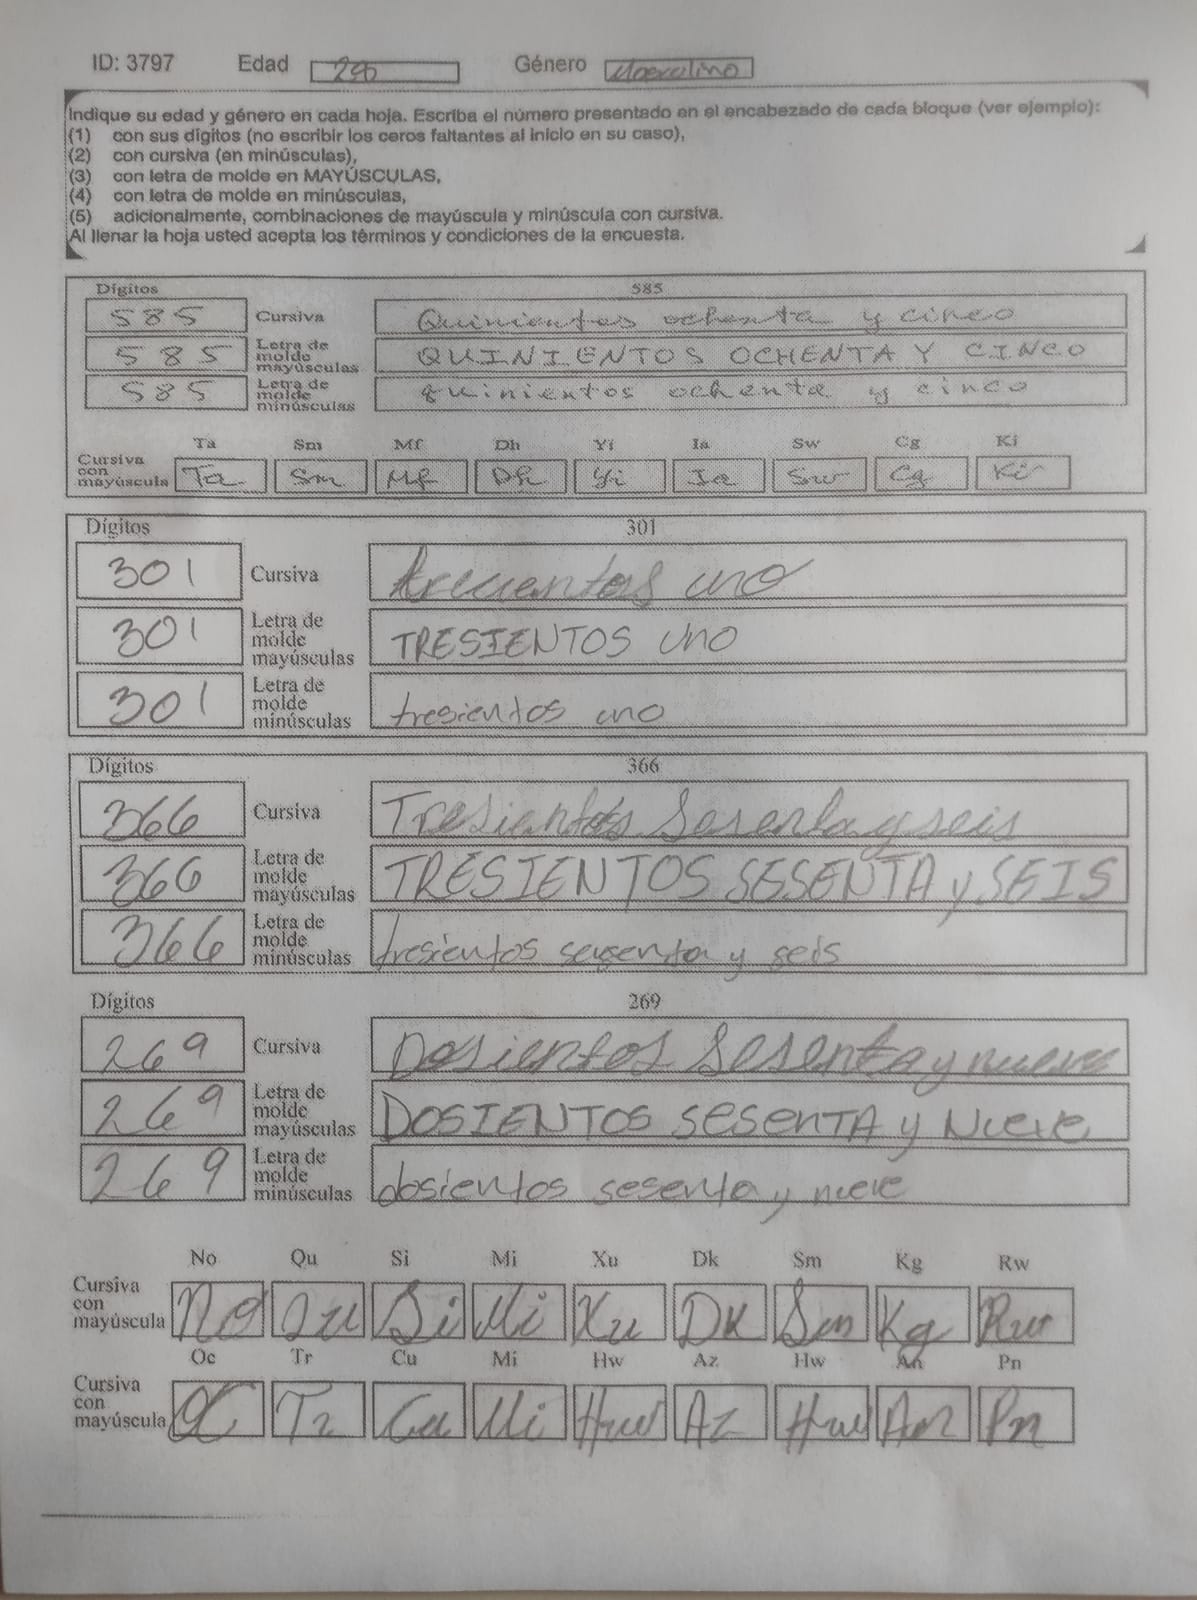 ID: 3797 Edad Género Masculino
Indique su edad y género en cada hoja. Escriba el número presentado en el encabezado de cada bloque (ver ejemplo):
(1) con sus dígitos (no escribir los ceros faltantes al inicio en su caso),
(2) con cursiva (en minúsculas),
(3) con letra de molde en MAYÚSCULAS,
(4) con letra de molde en minúsculas,
(5) adicionalmente, combinaciones de mayúscula y minúscula con cursiva.
Al llenar la hoja usted acepta los términos y condiciones de la encuesta.
Dígitos 585
585 Cursiva Quinientos ochenta y cinco
585 Letra de molde mayúsculas QUINIENTOS OCHENTA Y CINCO
585 Letra de molde minúsculas quinientos ochenta y cinco
Ta Sm Mf Dh Yi Ia Sw Cg Ki
Cursiva con mayúscula Ta Sm Mf Dh Yi Ia Sw Cg Ki
Dígitos 301
301 Cursiva trecientos uno
301 Letra de molde mayúsculas TRESIENTOS UNO
301 Letra de molde minúsculas tresientos uno
Dígitos 366
366 Cursiva Tresientos Sesenta y seis
366 Letra de molde mayúsculas TRESIENTOS SESENTA y SEIS
366 Letra de molde minúsculas tresientos sesenta y seis
Dígitos 269
269 Cursiva Dosientos Sesenta y nueve
269 Letra de molde mayúsculas DOSIENTOS SeSenTA y Nueve
269 Letra de molde minúsculas dosientos sesenta y nueve
No Qu Si Mi Xu Dk Sm Kg Rw
Cursiva con mayúscula No Qu Si Mi Xu Dk Sm Kg Rw
Oc Tr Cu Mi Hw Az Hw An Pn
Cursiva con mayúscula OC Tr Cu Mi Hw Az Hw An Pn